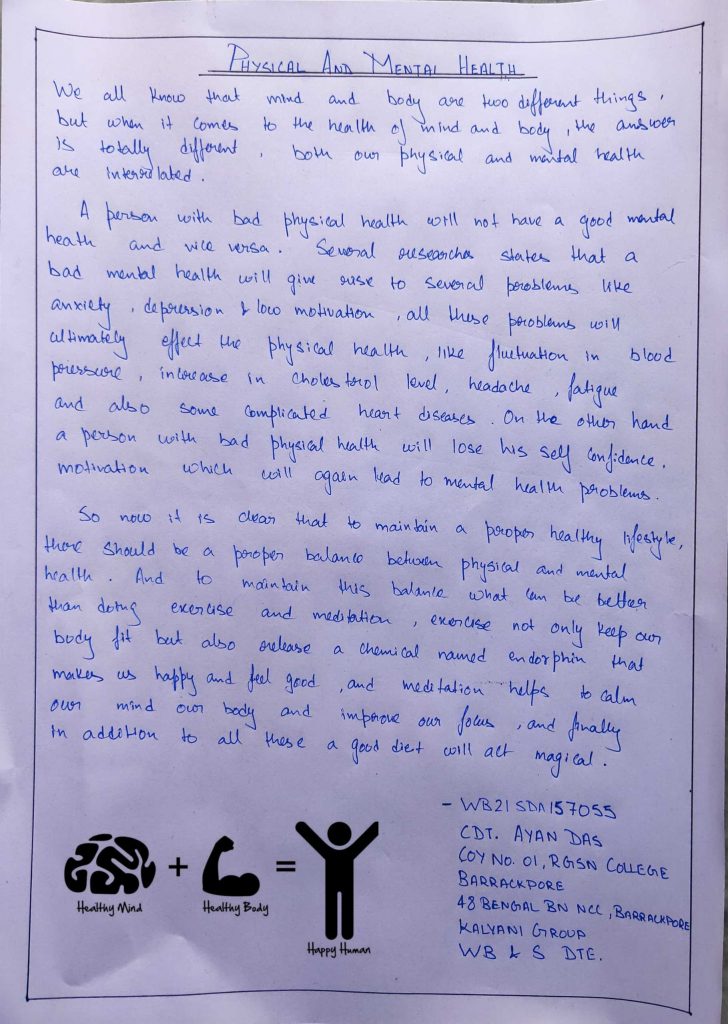 PHYSICAL AND MENTAL HEALTH
We all know that mind and body are two different things,
but when it comes to the health of mind and body, the answer
is totally different, both our physical and mental health
are interrelated.
A person with bad physical health will not have a good mental
heath and vice versa. Several researches states that a
bad mental health will give rise to several problems like
anxiety, depression & low motivation, all these problems will
ultimately effect the physical health, like fluctuation in blood
pressure, increase in cholestrol level, headache, fatigue
and also some complicated heart diseases. On the other hand
a person with bad physical health will lose his self confidence,
motivation which will again lead to mental health problems.
So now it is clear that to maintain a proper healthy lifestyle,
there should be a proper balance between physical and mental
health. And to maintain this balance what can be better
than doing exercise and meditation, exercise not only keep our
body fit but also release a chemical named endorphin that
makes us happy and feel good, and meditation helps to calm
our mind our body and improve our focus, and finally
in addition to all these a good diet will act magical.
- WB21SDA157055
CDT. AYAN DAS
COY NO. 01, RGSN COLLEGE
BARRACKPORE
48 BENGAL BN NCC, BARRACKPORE
KALYANI GROUP
WB & S DTE.
+ =
Healthy Mind Healthy Body
Happy Human